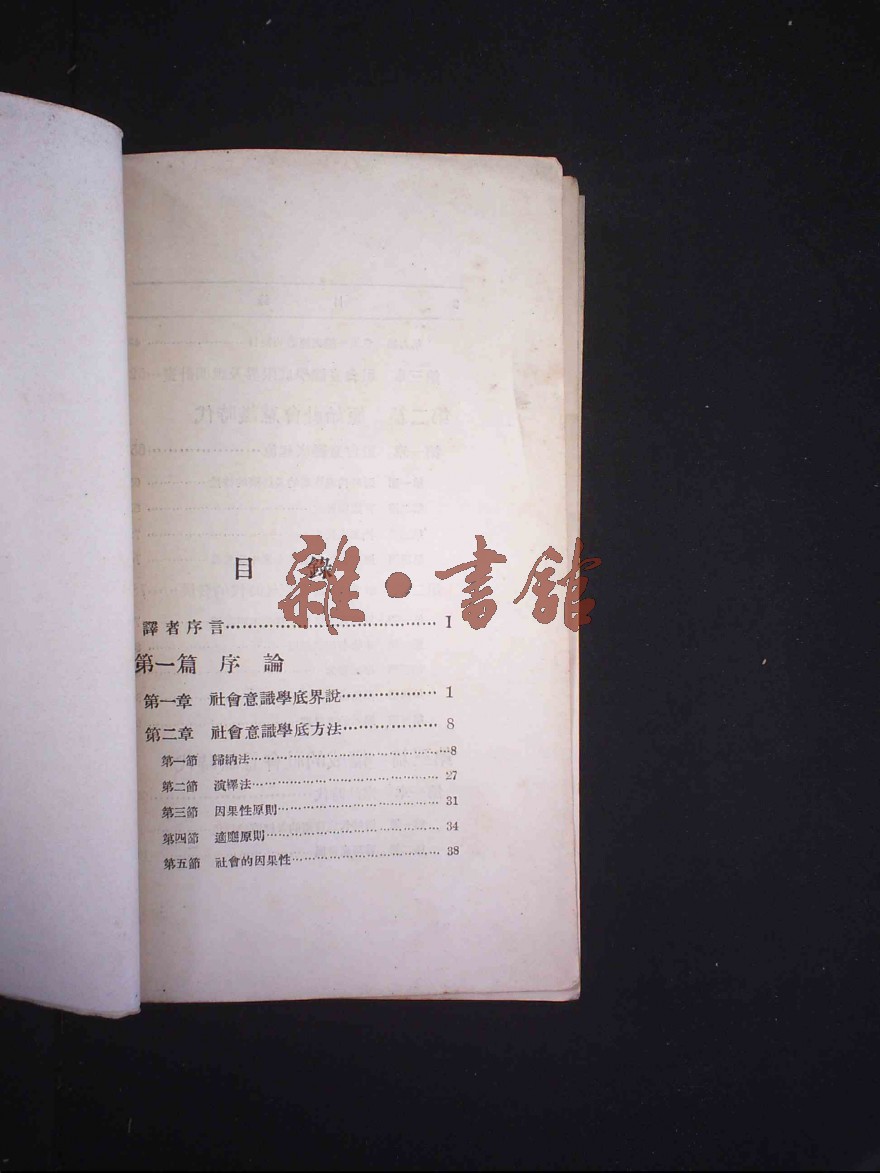 目 錄
雜·書館
譯者序言…………………………………I
第一篇 序 論
第一章 社會意識學底界說………………1
第二章 社會意識學底方法………………8
第一節 歸納法……………………………8
第二節 演繹法……………………………27
第三節 因果性原則………………………31
第四節 適應原則…………………………34
第五節 社會的因果性……………………38